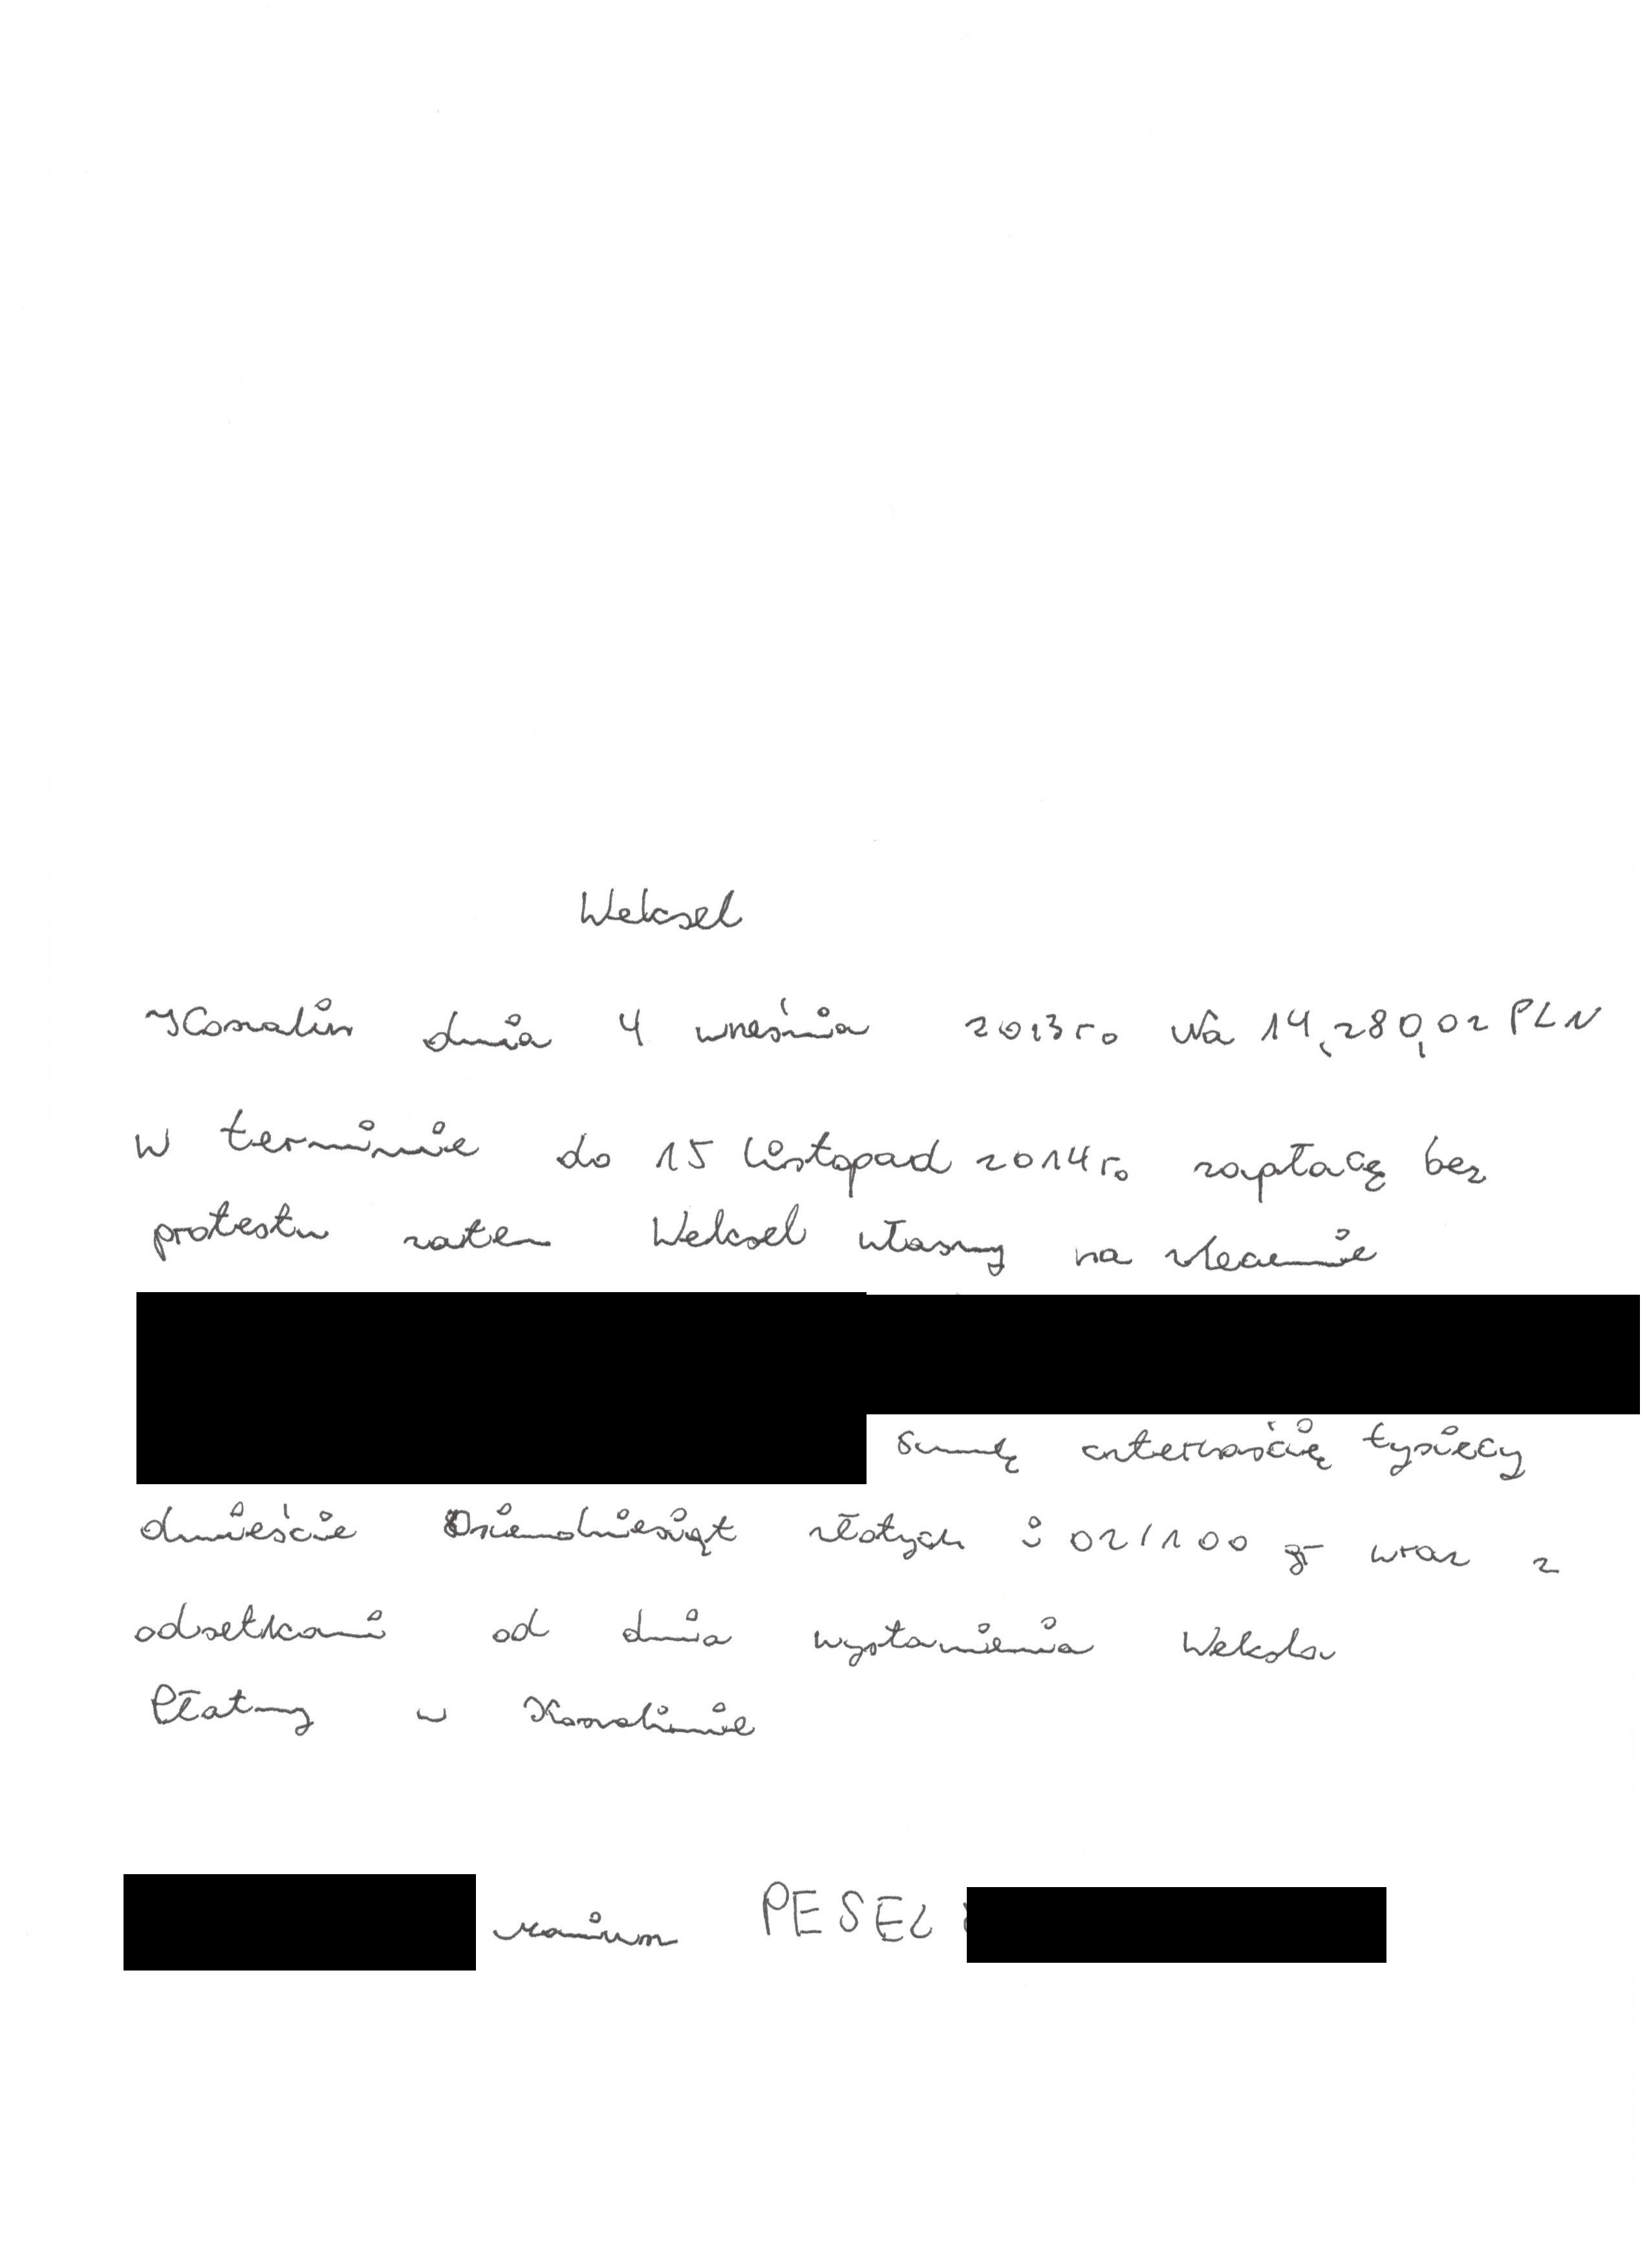 Weksel
Koszalin dnia 4 września 2013 r. Na 14.280,02 PLN
w terminie do 15 Listopad 2014 r. zapłacę bez
protestu zaten Weksel własny na zlecenie
sumę czternaście tysięcy
dwieście Osiemdziesiąt złotych i 02/100 gr wraz z
odsetkami od dnia wystawienia Weksla
Płatny w Koszalinie
PESEL